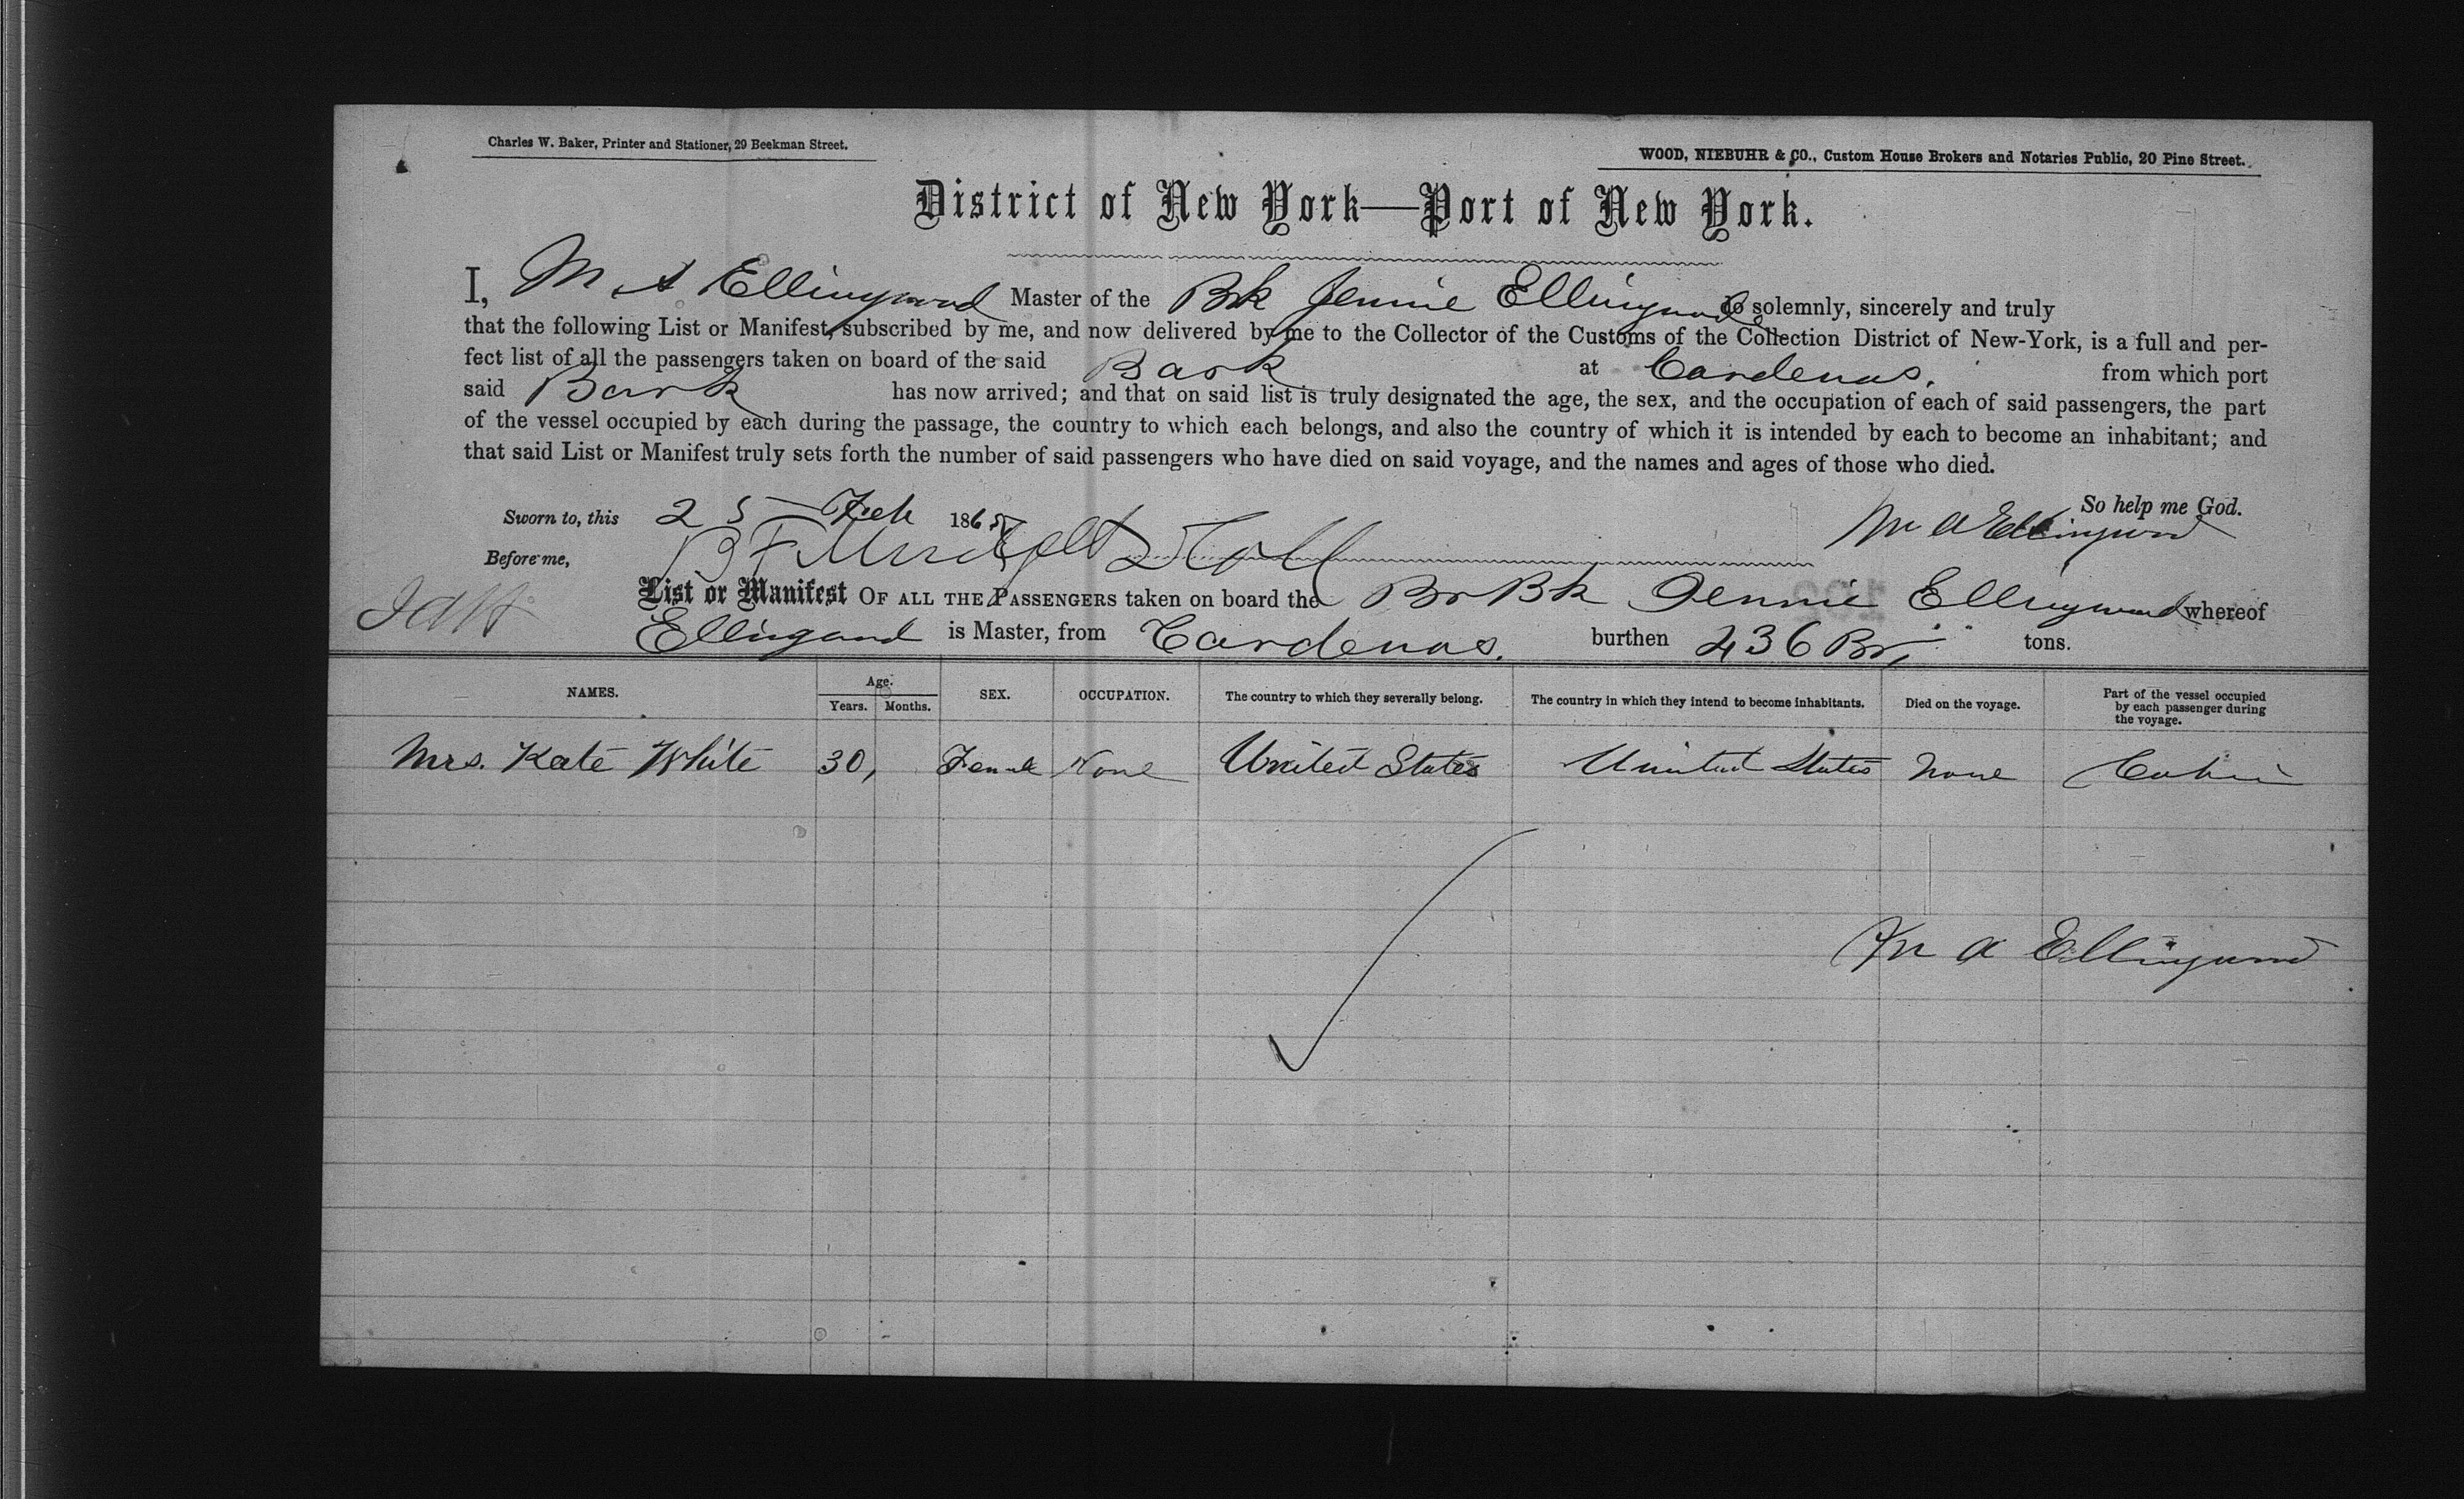 Charles W. Baker, Printer and Stationer, 29 Beekman Street.
WOOD, NIEBUHR & CO., Custom House Brokers and Notaries Public, 20 Pine Street.
District of New York—Port of New York.
I, M A Ellingwood Master of the Bk Jennie Ellingwood do solemnly, sincerely and truly
that the following List or Manifest, subscribed by me, and now delivered by me to the Collector of the Customs of the Collection District of New-York, is a full and per-
fect list of all the passengers taken on board of the said Bark at Cardenas. from which port
said Bark has now arrived; and that on said list is truly designated the age, the sex, and the occupation of each of said passengers, the part
of the vessel occupied by each during the passage, the country to which each belongs, and also the country of which it is intended by each to become an inhabitant; and
that said List or Manifest truly sets forth the number of said passengers who have died on said voyage, and the names and ages of those who died.
So help me God.
Sworn to, this 25 Feb 1865 M A Ellingwood
Before me,
List or Manifest OF ALL THE PASSENGERS taken on board the Br Bk Jennie Ellingwood whereof
Ellingwood is Master, from Cardenas. burthen 436 Br, tons.
NAMES. Age. Years. Months. SEX. OCCUPATION. The country to which they severally belong. The country in which they intend to become inhabitants. Died on the voyage. Part of the vessel occupied by each passenger during the voyage.
Mrs. Kate White 30, Female None United States United States None Cabin
M A Ellingwood